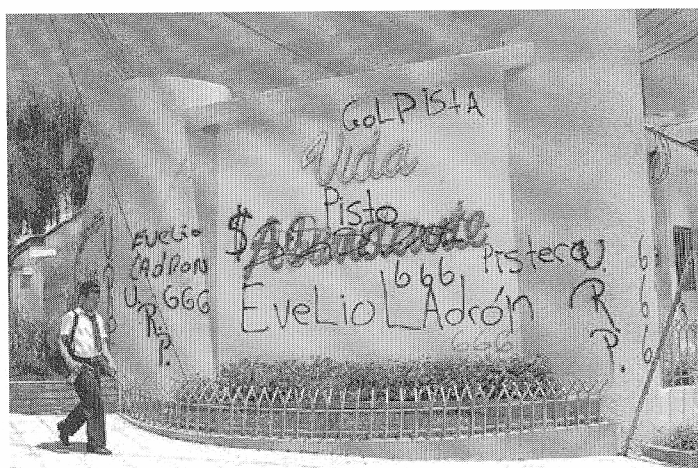 GOLPISTA
Vida
Pisto
$ Abundante
666
Pistero
EveLio LAdrón
666
EveLio
LAdRON
U 666
R.
P.
U.
R.
P.
6
6
6
6